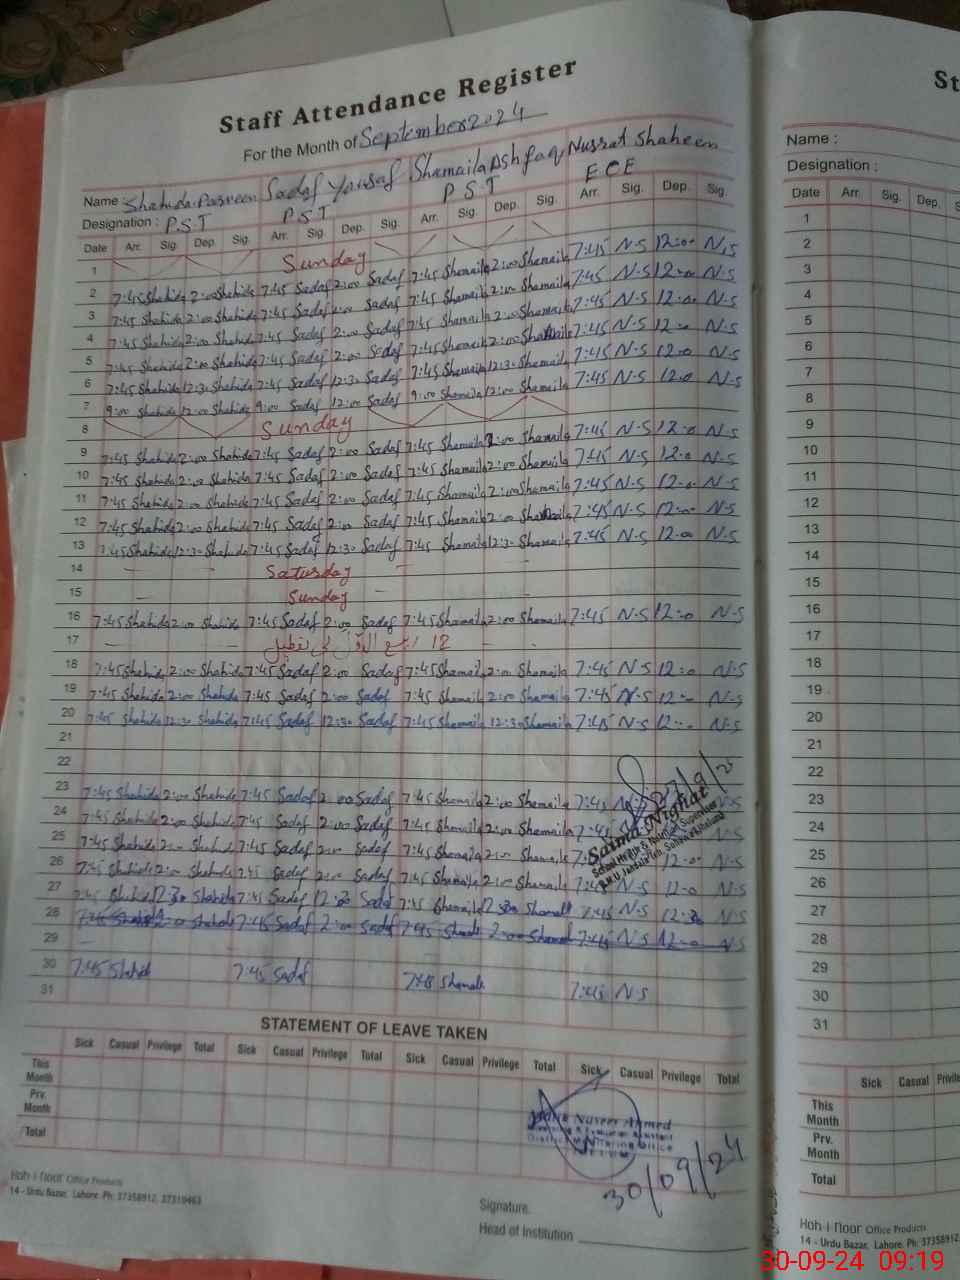 Staff Attendance Register
For the Month of September 2024
Name : Shahida Parveen Sadaf Yousaf Shamaila Ashfaq Nusrat Shaheen
Designation : P.S.T P.S.T P.S.T ECE
Date Arr. Sig. Dep. Sig. Arr. Sig. Dep. Sig. Arr. Sig. Dep. Sig. Arr. Sig. Dep. Sig.
1 Sunday
2 7:45 Shahida 2:00 Shahida 7:45 Sadaf 2:00 Sadaf 7:45 Shamaila 2:00 Shamaila 7:45 N.S 12:00 N.S
3 7:45 Shahida 2:00 Shahida 7:45 Sadaf 2:00 Sadaf 7:45 Shamaila 2:00 Shamaila 7:45 N.S 12:00 N.S
4 7:45 Shahida 2:00 Shahida 7:45 Sadaf 2:00 Sadaf 7:45 Shamaila 2:00 Shamaila 7:45 N.S 12:00 N.S
5 7:45 Shahida 2:00 Shahida 7:45 Sadaf 2:00 Sadaf 7:45 Shamaila 2:00 Shamaila 7:45 N.S 12:0 N.S
6 7:45 Shahida 12:30 Shahida 7:45 Sadaf 12:30 Sadaf 7:45 Shamaila 12:30 Shamaila 7:45 N.S 12:0 N.S
7 9:00 Shahida 12:00 Shahida 9:00 Sadaf 12:00 Sadaf 9:00 Shamaila 12:00 Shamaila 7:45 N.S 12:0 N.S
8 Sunday
9 7:45 Shahida 2:00 Shahida 7:45 Sadaf 2:00 Sadaf 7:45 Shamaila 2:00 Shamaila 7:45 N.S 12:0 N.S
10 7:45 Shahida 2:00 Shahida 7:45 Sadaf 2:00 Sadaf 7:45 Shamaila 2:00 Shamaila 7:45 N.S 12:0 N.S
11 7:45 Shahida 2:00 Shahida 7:45 Sadaf 2:00 Sadaf 7:45 Shamaila 2:00 Shamaila 7:45 N.S 12:00 N.S
12 7:45 Shahida 2:00 Shahida 7:45 Sadaf 2:00 Sadaf 7:45 Shamaila 2:00 Shamaila 7:45 N.S 12:00 N.S
13 7:45 Shahida 12:30 Shahida 7:45 Sadaf 12:30 Sadaf 7:45 Shamaila 12:30 Shamaila 7:45 N.S 12:00 N.S
14 Saturday
15 Sunday
16 7:45 Shahida 2:00 Shahida 7:45 Sadaf 2:00 Sadaf 7:45 Shamaila 2:00 Shamaila 7:45 N.S 12:0 N.S
17 12 ربیع الاول کی تعطیل
18 7:45 Shahida 2:00 Shahida 7:45 Sadaf 2:00 Sadaf 7:45 Shamaila 2:00 Shamaila 7:45 N.S 12:0 N.S
19 7:45 Shahida 2:00 Shahida 7:45 Sadaf 2:00 Sadaf 7:45 Shamaila 2:00 Shamaila 7:45 N.S 12:00 N.S
20 7:45 Shahida 12:30 Shahida 7:45 Sadaf 12:30 Sadaf 7:45 Shamaila 12:30 Shamaila 7:45 N.S 12:00 N.S
21
22
23 7:45 Shahida 2:00 Shahida 7:45 Sadaf 2:00 Sadaf 7:45 Shamaila 2:00 Shamaila 7:45 N.S
24 7:45 Shahida 2:00 Shahida 7:45 Sadaf 2:00 Sadaf 7:45 Shamaila 2:00 Shamaila 7:45
25 7:45 Shahida 2:00 Shahida 7:45 Sadaf 2:00 Sadaf 7:45 Shamaila 2:00 Shamaila 12:00 N.S
26 7:45 Shahida 2:00 Shahida 7:45 Sadaf 2:00 Sadaf 7:45 Shamaila 2:00 Shamaila 7:45 N.S 12:0 N.S
27 7:45 Shahida 12:30 Shahida 7:45 Sadaf 12:30 Sadaf 7:45 Shamaila 12:30 Shamaila 7:45 N.S 12:30 N.S
28 7:45 Shahida 2:00 Shahida 7:45 Sadaf 2:00 Sadaf 7:45 Shamaila 2:00 Shamaila 7:45 N.S 12:0 N.S
29
30 7:45 Shahida 7:45 Sadaf 7:45 Shamaila 7:45 N.S
31
Saima Nighat
School Health & Nutrition Supervisor
STATEMENT OF LEAVE TAKEN
Sick Casual Privilege Total Sick Casual Privilege Total Sick Casual Privilege Total Sick Casual Privilege Total
This Month
Prv. Month
Total
Naseer Ahmed
Monitoring & Evaluation Assistant
District Monitoring Office
30/09/24
Hoh-i-noor Office Products
14 - Urdu Bazar, Lahore. Ph: 37358912, 37319463
Signature.
Head of Institution
St
Name :
Designation :
Date Arr. Sig. Dep.
1
2
3
4
5
6
7
8
9
10
11
12
13
14
15
16
17
18
19
20
21
22
23
24
25
26
27
28
29
30
31
Sick Casual Privilege
This Month
Prv. Month
Total
Hoh-i-noor Office Products
14 - Urdu Bazar, Lahore. Ph: 37358912
30-09-24 09:19